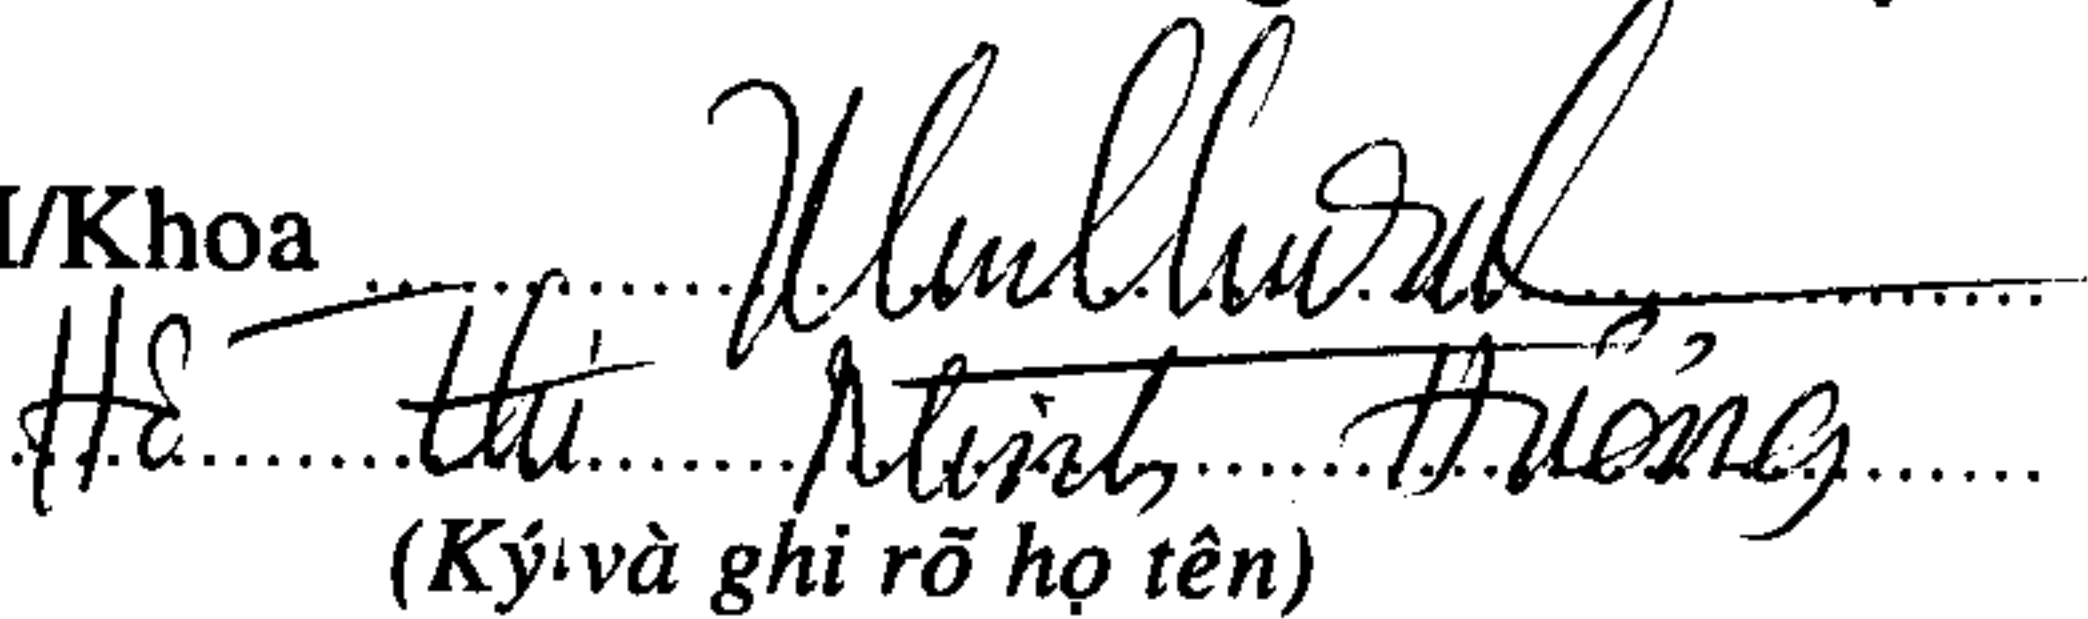 /Khoa
Hồ Thị Minh Hưởng
(Ký và ghi rõ họ tên)